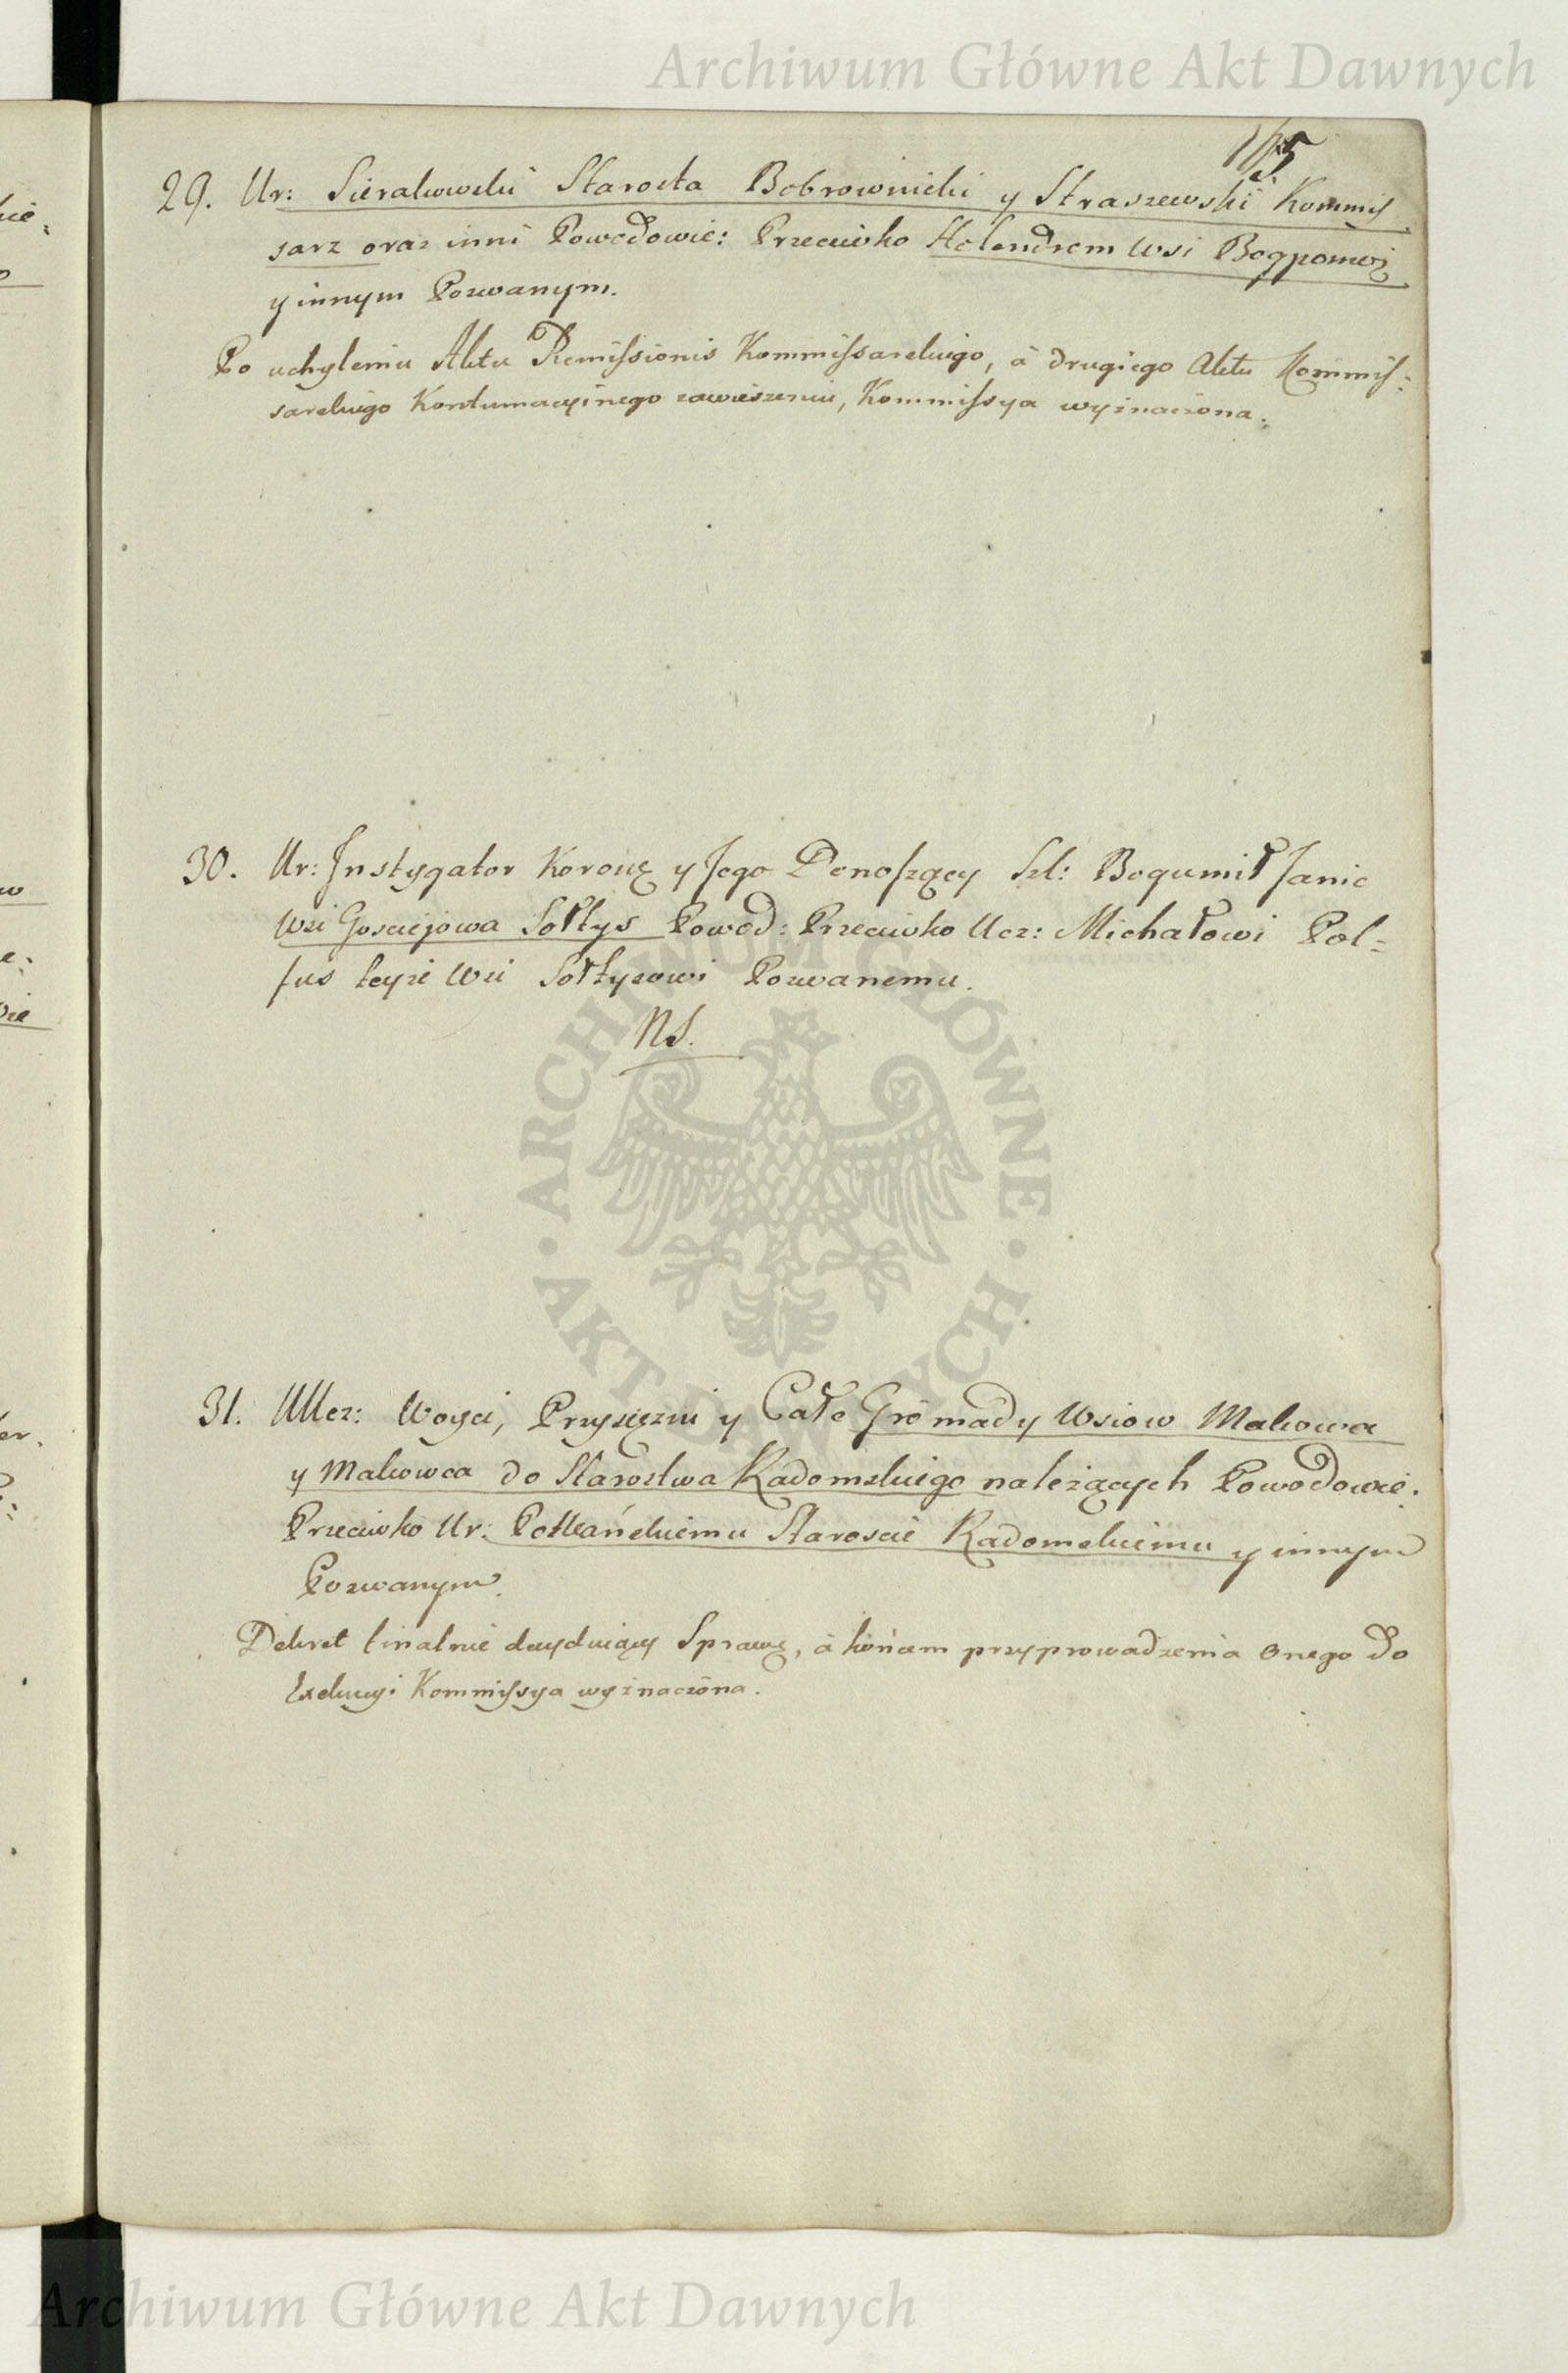 Archiwum Główne Akt Dawnych
29. Ur: Sierakowski Starosta Bobrownicki y Straszewski Kommis
sarz oraz inni Powodowie: Przeciwko Holendrom Wsi Bogpomoż
y innym Pozwanym.
Po uchyleniu Aktu Remissionis Kommissarskiego, à drugiego Aktu Kommis:
sarskiego Kontumacyinego zawieszeniu, Kommissya wyznaczona.
30. Ur: Instygator Koronę y Jego Donoszący Szl: Bogumił Janic
Wsi Gosciejowa Sołtys Powod: Przeciwko Ucz: Michałowi Pol=
fus teyże Wsi Sołtysowi Pozwanemu.
NS.
31. UUcz: Woyci, Przysięzni y Całe Gromady Wsiow Makowa
y Makowca do Starostwa Radomskiego należących Powodowie.
Przeciwko Ur: Potkańskiemu Staroscie Radomskiemu y innym
Pozwanym.
Dekret finalnie decyduiący Sprawę, à końcem przyprowadzenia onego do
Exekucyi Kommissya wyznaczona.
ARCHIWUM GŁÓWNE
AKT DAWNYCH
Archiwum Główne Akt Dawnych